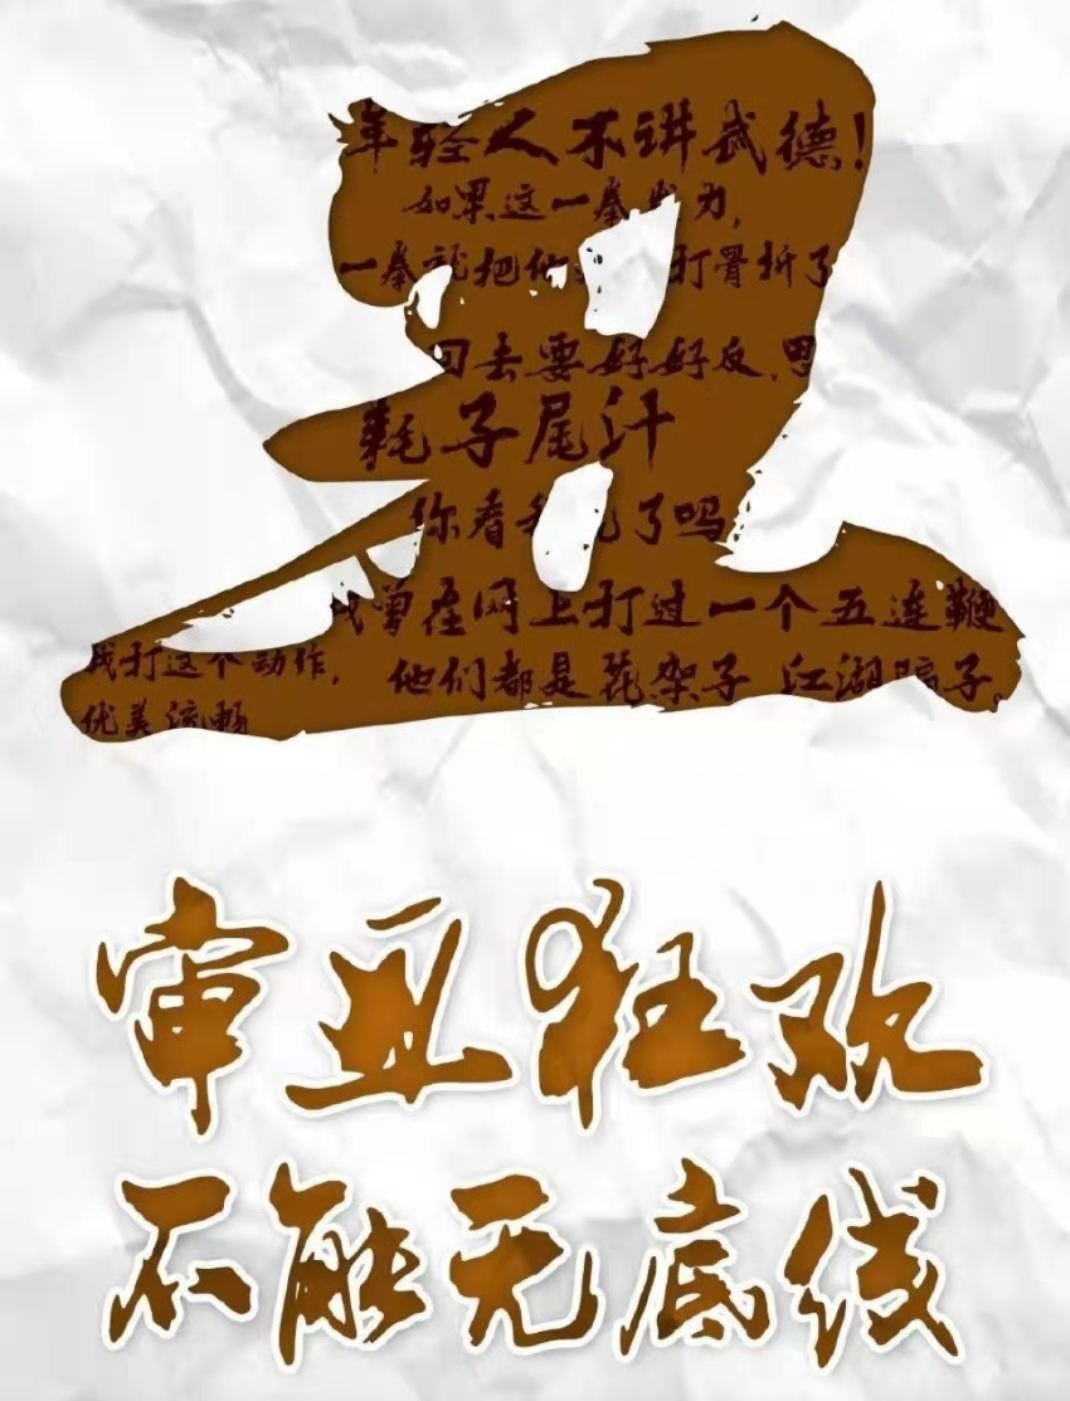 丑
年轻人不讲武德!
如果这一拳发力,
一拳能把他 打骨折了
回去要好好反思
耗子尾汁
你看 了吗
我曾在网上打过一个五连鞭
我打这个动作, 他们都是花架子 江湖骗子。
优美流畅
审丑狂欢
不能无底线